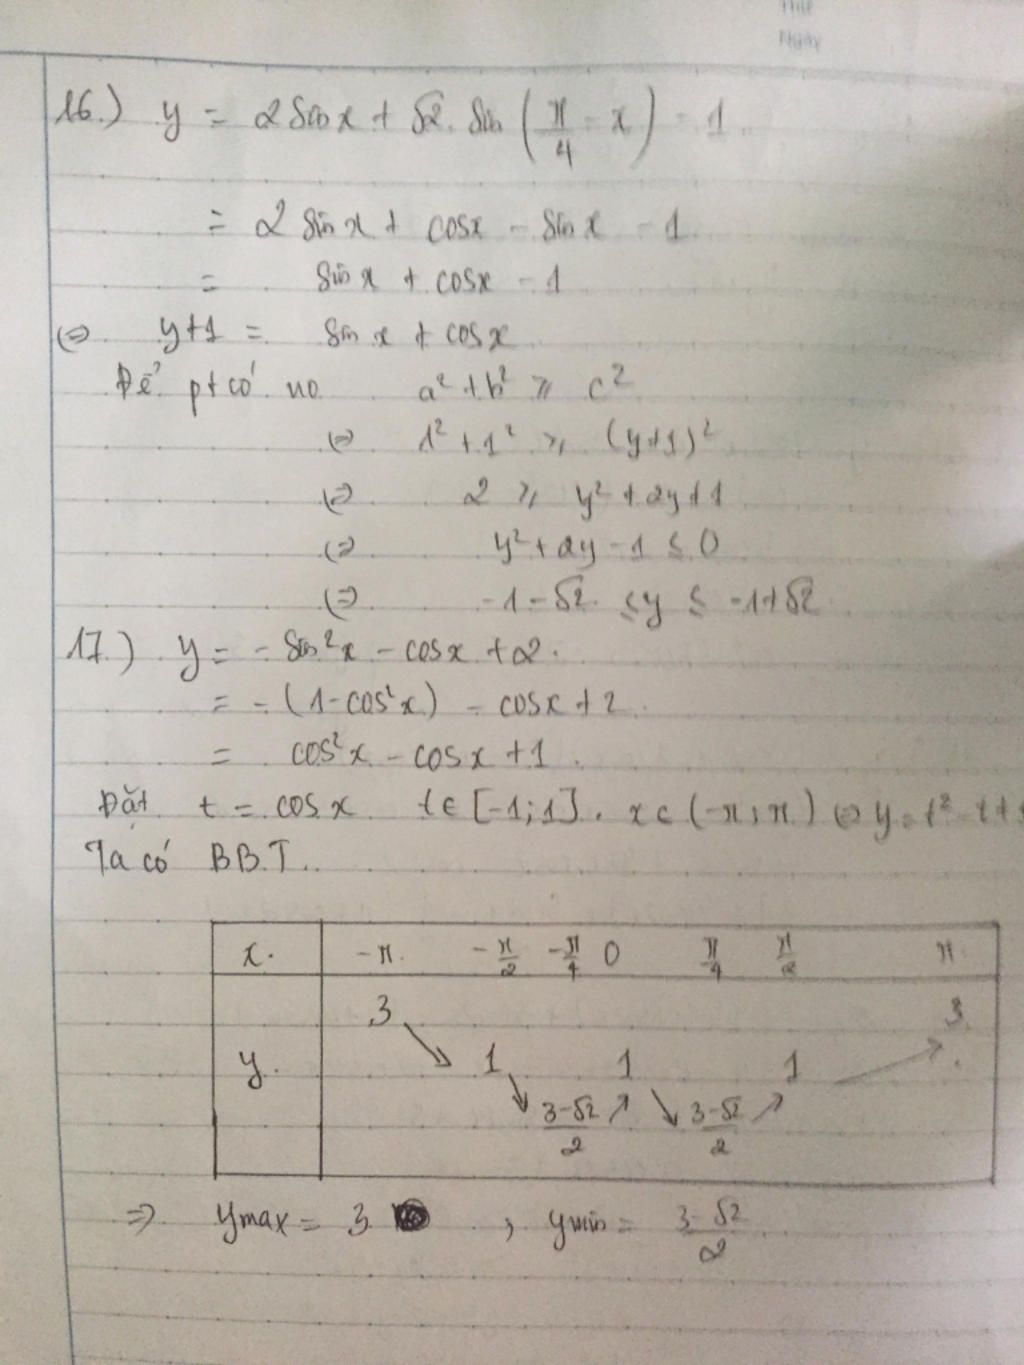 Ngày
16.) y = 2 sin x + √2. sin (π/4 - x) - 1.
= 2 sin x + cos x - sin x - 1
= sin x + cos x - 1
(=) y+1 = sin x + cos x
Để pt có no a² + b² ≥ c²
(=) 1² + 1² ≥ (y+1)²
(=) 2 ≥ y² + 2y + 1
(=) y² + 2y - 1 ≤ 0
(=) -1 - √2 ≤ y ≤ -1 + √2
17.) y = - sin²x - cos x + 2.
= - (1 - cos²x) - cos x + 2
= cos²x - cos x + 1.
Đặt t = cos x t ∈ [-1; 1]. x ∈ (-π; π) (=) y = t² - t +
Ta có BBT.
x. -π. -π/2 -π/4 0 π/4 π/2 π
3 3
y. 1 1 1
(3-√2)/2 (3-√2)/2
=> ymax = 3 , ymin = (3-√2)/2